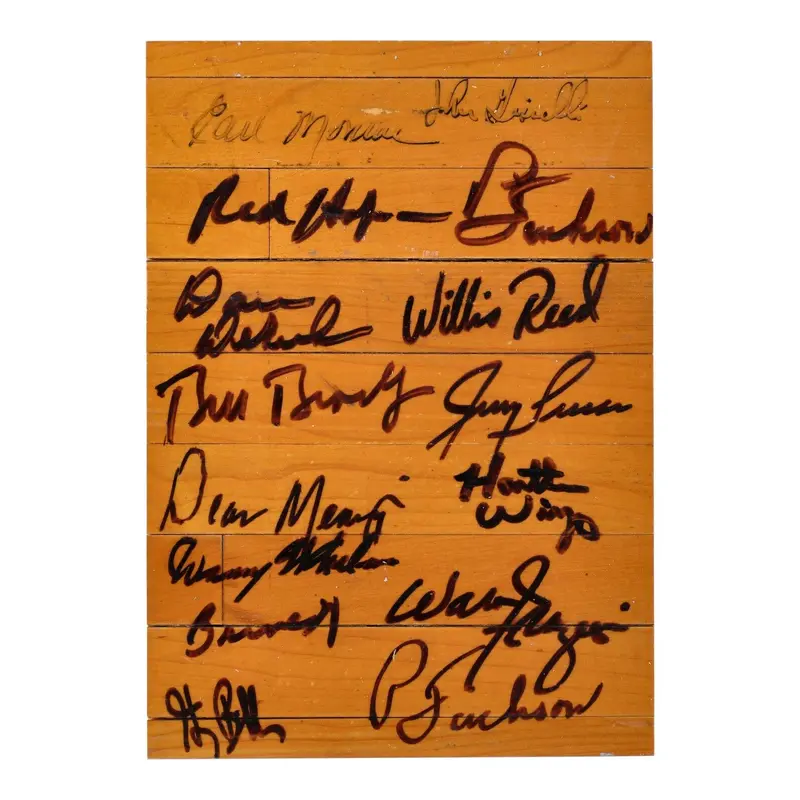 Earl Monroe John Gianelli
Red Holzman P Jackson
Dave Willis Reed
DeBusschere
Bill Bradley Jerry Lucas
Dean Meminger Harthorne
Wingo
Barnett Walt
Frazier
Henry Bibby P Jackson